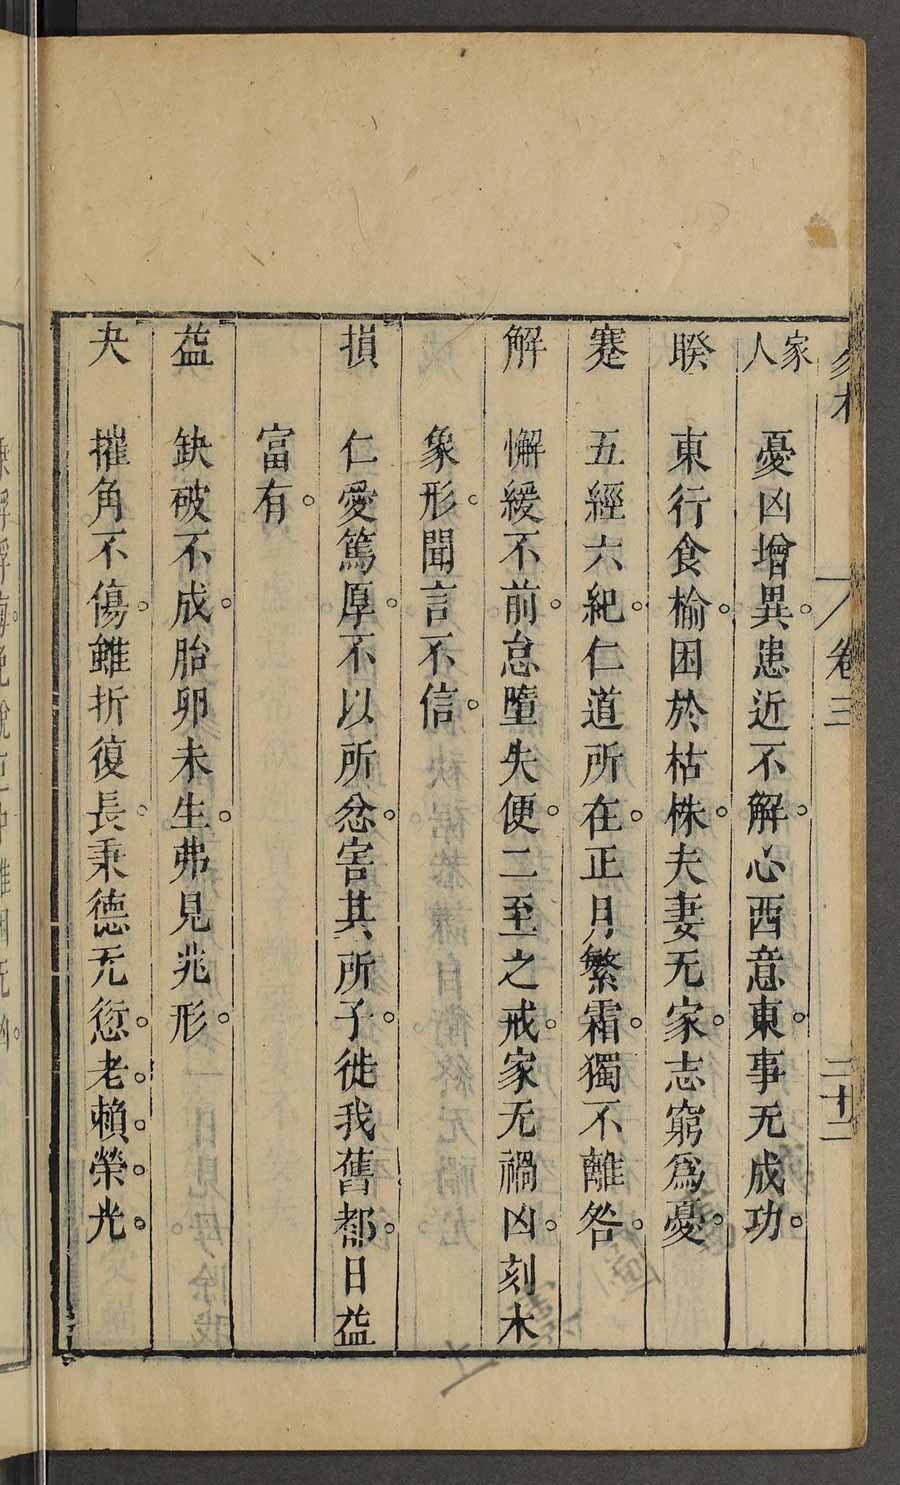 易林 卷三 二十二
家人 憂凶增異。患近不解。心西意東。事无成功。
睽 東行食榆。困於枯株。夫妻无家。志窮爲憂。
蹇 五經六紀。仁道所在。正月繁霜。獨不離咎。
解 懈緩不前。怠墮失便。二至之戒。家无禍凶。刻木
象形。聞言不信。
損 仁愛篤厚。不以所忿。害其所子。徙我舊都。日益
富有。
益 缺破不成。胎卵未生。弗見兆形。
夬 摧角不傷。雖折復長。秉德无愆。老。賴。榮。光。